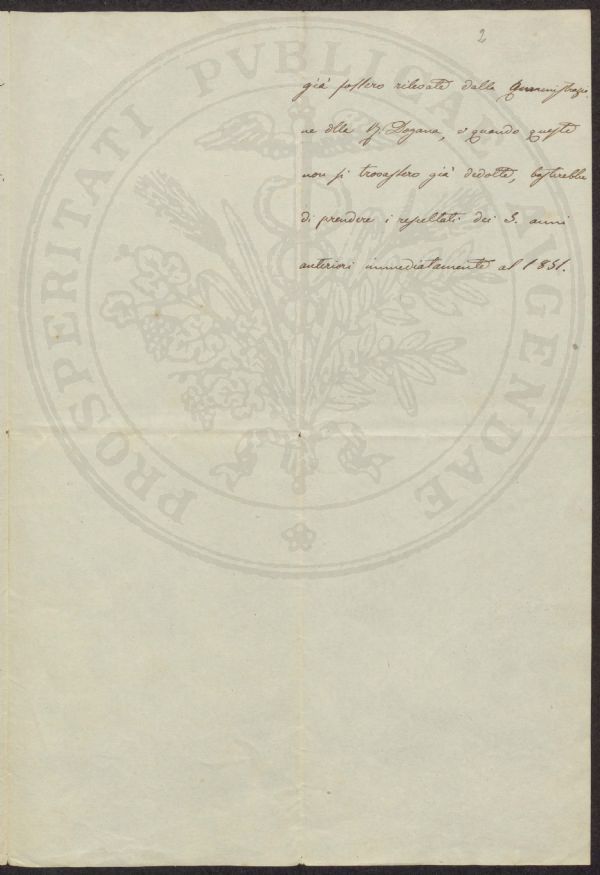 2
già fossero rilevate dalla Amministrazio
ne della R. Dogana, o quando queste
non si trovassero già dedotte, basterebbe
di prendere i resultati dei 3. anni
anteriori immediatamente al 1851.
PROSPERITATI PVBLICAE AVGENDAE